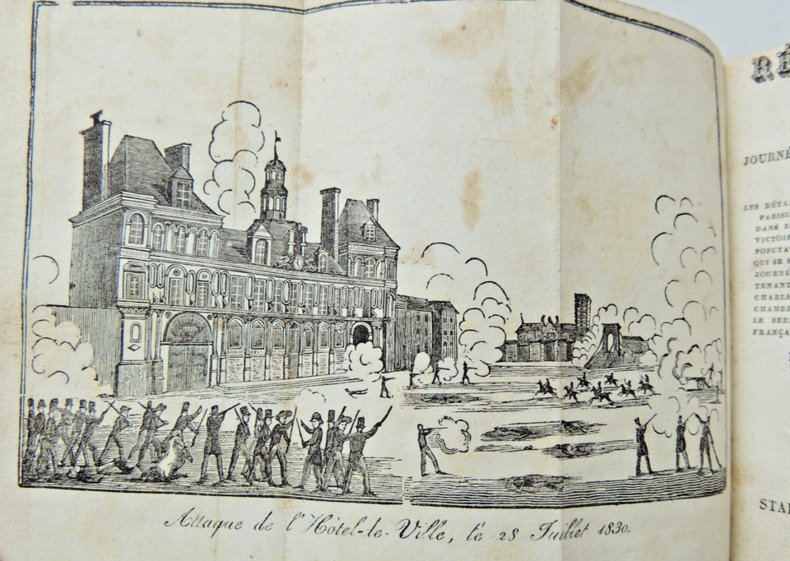 Attaque de l'Hôtel-de-Ville, le 28 Juillet 1830.
RÉ
JOURNÉ
LES DÉTA
PARISI
DANS L
VICTOIR
POPULAT
QUI SE S
JOURNÉ
TENANT
CHARLE
CHAMBR
LE SER
FRANÇA
STA